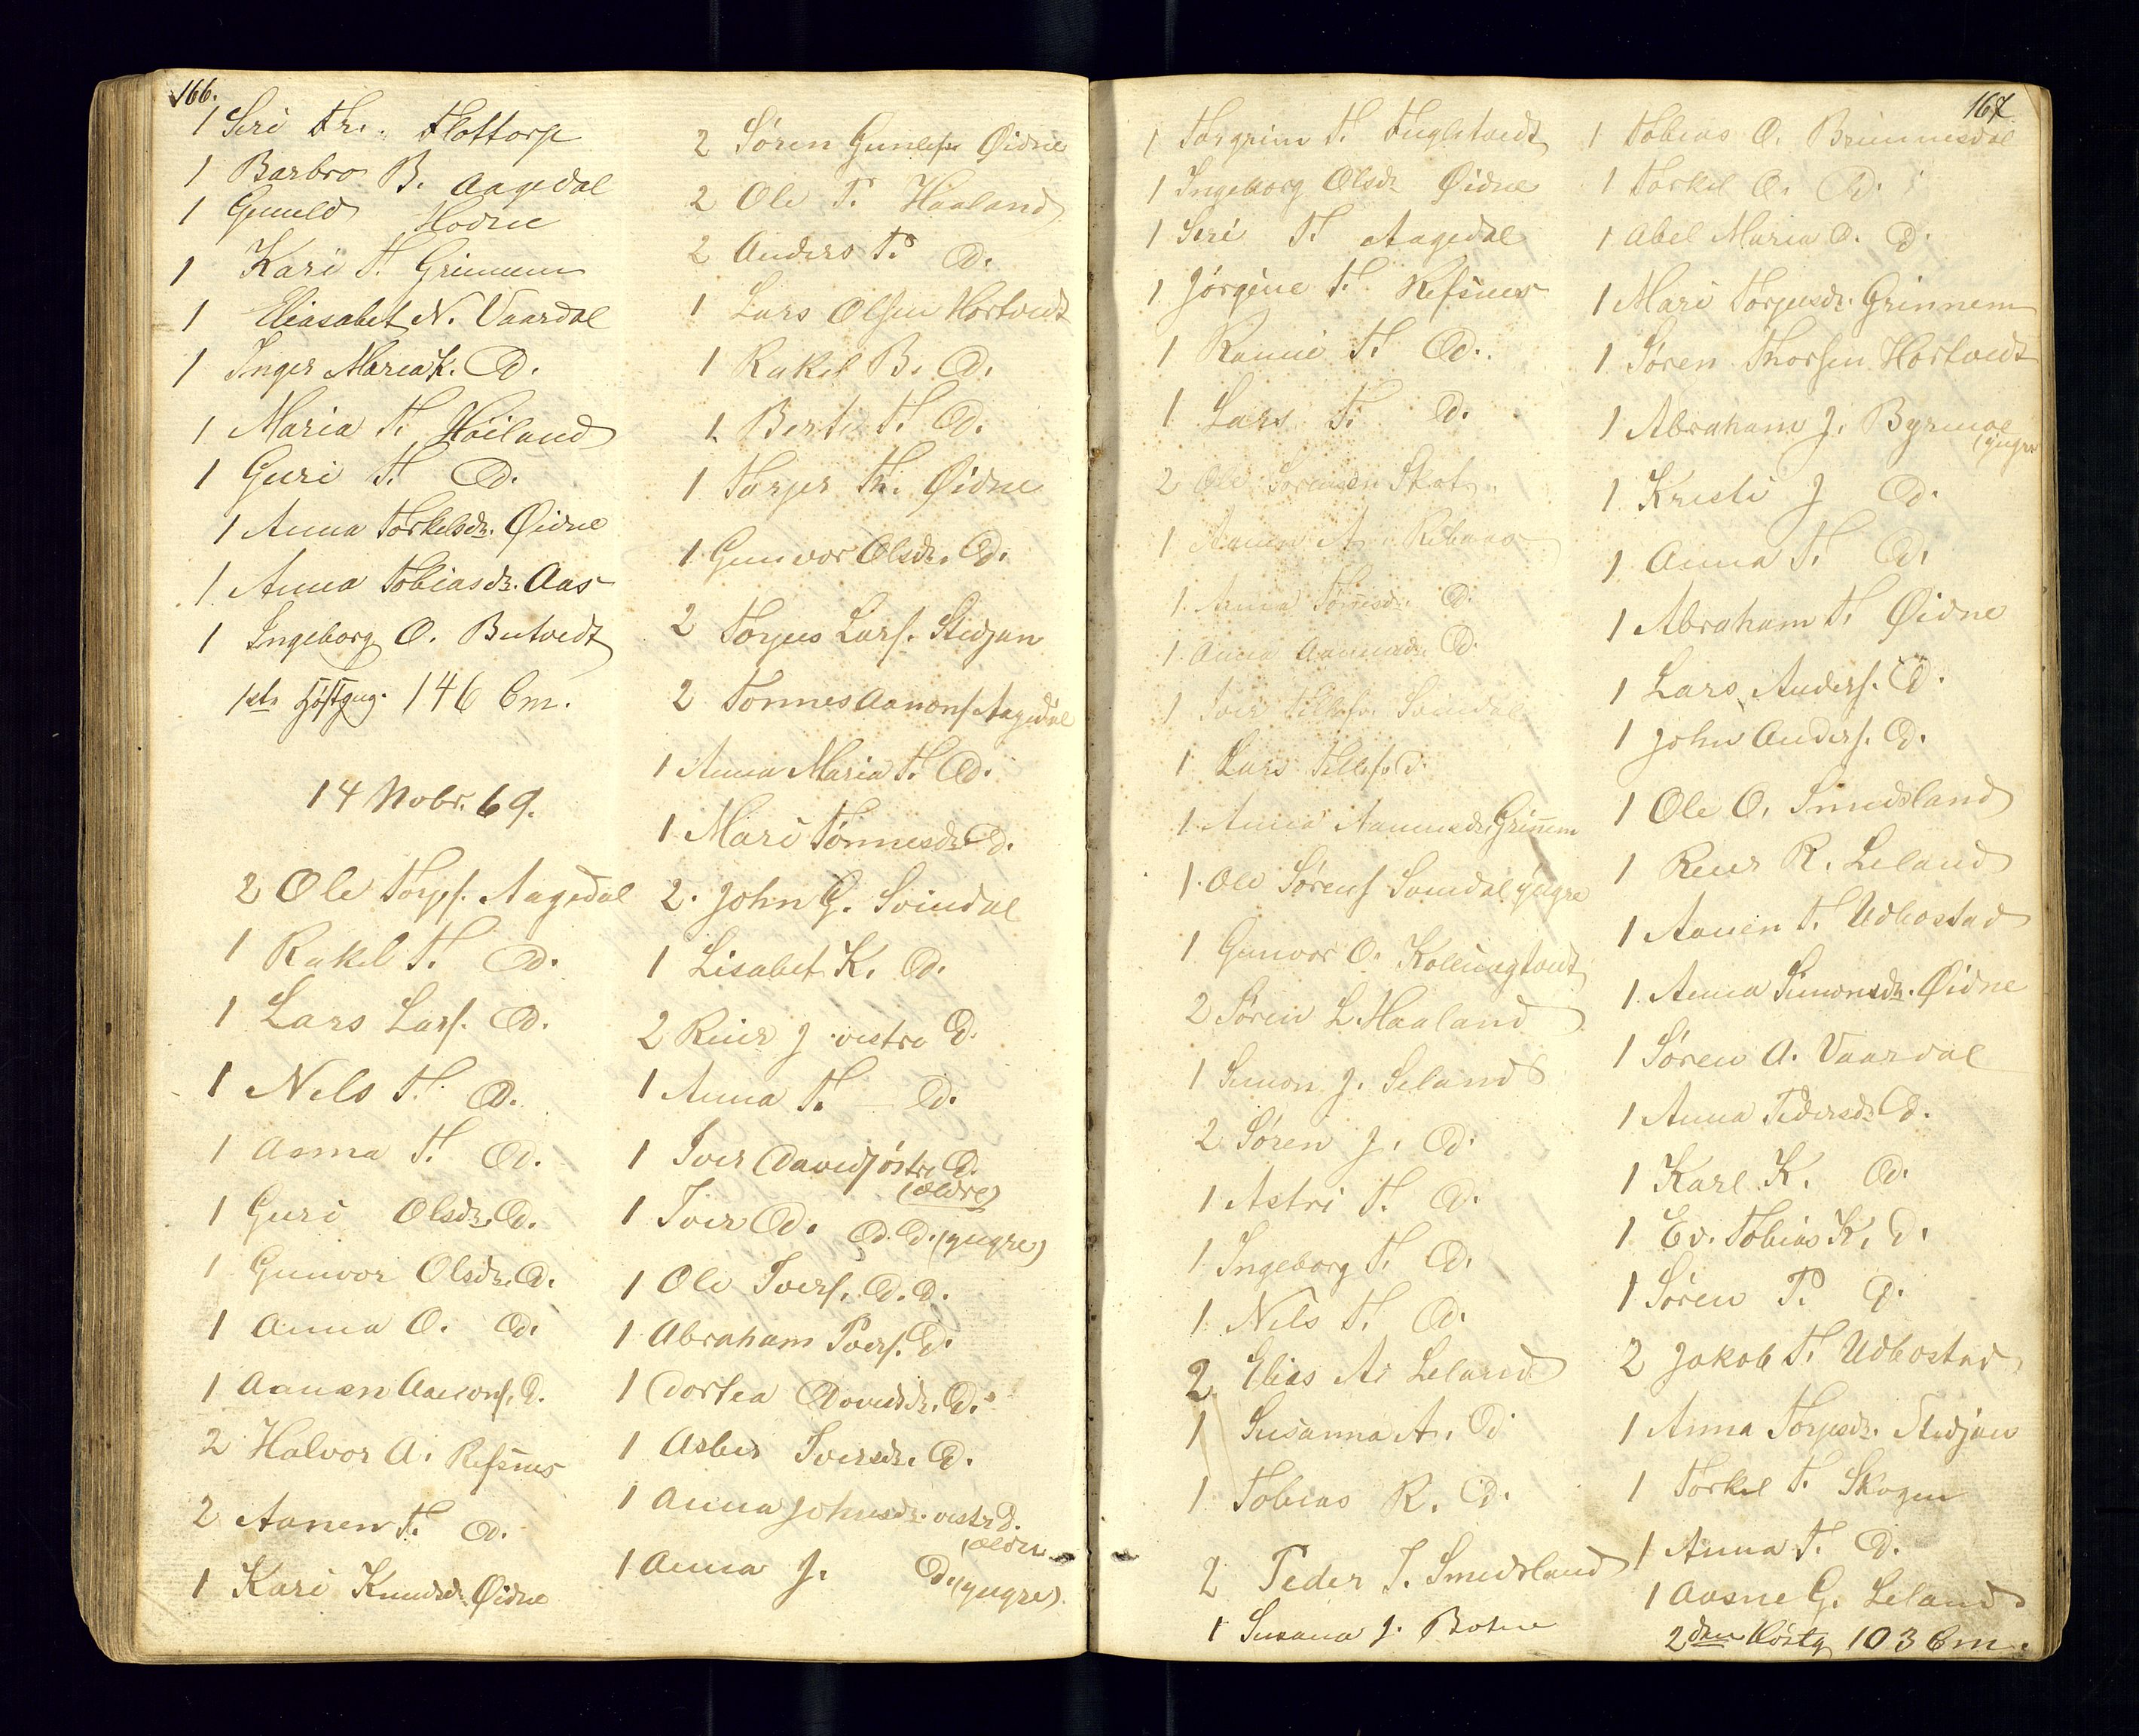 166.
1 Siri Th. Flottorp
1 Barbro B. Aagedal
1 Gunuld Hodne
1 Kari T. Grinnem
1 Eliasabet N. Vaardal
1 Inger Maria K. D.
1 Maria T. Høiland
1 Guri T. D.
1 Anna Torkelsdr. Øidne
1 Anna Tobiasdr. Aas
1 Ingeborg O. Butvedt
1ste Høstgug. 146 Cm.
14 Nobr. 69.
2 Ole Torjs. Aagedal
1 Rakel T. D.
1 Lars Lars. D.
1 Nils T. D.
1 Asma T. D.
1 Guri Olsdr. D.
1 Gunvor Olsdr. D.
1 Anna O. D.
1 Aanen Aanons. D.
2 Halvor A. Refsnes
2 Aanen T. D.
1 Kari Knudsdr. Øidne
2 Søren Gunlefs Øidne
2 Ole P. Haaland
2 Anders P. D.
1 Lars Olsen Hortvedt
1 Rakel B. D.
1 Berte T. D.
1 Torjer Th. Øidne
1 Gunvor Olsdr. D.
2 Torjus Lars. Stedjan
2 Tønnes Aanons Aagedal
1 Anna Maria T. D.
1 Mari Tønnesdr. D.
2. John G. Svindal
1 Lisabet K. D.
2 Reier J. vestre D.
1 Anna T. D.
1 Iver Davids østre D.
(ældre)
1 Iver D. D. D. (yngre)
1 Ole Ivers. D. D.
1 Abraham Ivers. D.
1 Dortea Davidsdr. D.
1 Asber Iversdr. D.
1 Anna Johnsdr. vestr D.
(ældre
1 Anna J. D. (yngre).
167
1 Torgrim T. Fuglestvedt
1 Ingeborg Olsdr Øidne
1 Siri T. Aagedal
1 Jørgine T. Refsnes
1 Ranni T. D.
1 Lars T. D.
2 Ole Sørensen Skot
1 Aanen A. Ribaas
1. Anna Tønnesdr. D.
1. Anna Aanensdr. D.
1 Iver Tellefs. Svindal
1 Lars Tellefs. D.
1. Anna Aanensdr. Grinnem
1. Ole Sørens Svindal yngre
1 Gunvor O. Kollungtvedt
2 Søren L. Haaland
1 Simon J. Seland
2 Søren J. D.
1 Astri T. D.
1 Ingeborg T. D.
1. Nils T. D.
2. Elias A. Leland
1 Susanna A. D.
1. Tobias R. D.
2 Peder T. Smedsland
1 Susana J. Bosne
1 Tobias O. Brunnesdal
1 Torkel O. D.
1 Abel Maria O. D.
1 Mari Torjusdr. Grinnem
1 Søren Thorsen Hortvedt
1 Abraham J. Byrmoe
(yngre
1 Kristi J D.
1 Anna T. D.
1 Abraham T. Øidne
1 Lars Anders. D.
1 John Anders. D.
1 Ole O. Smedsland
1 Reier R. Leland
1 Aanen T. Udbostad
1. Anna Simonsdr. Øidne
1 Søren A. Vaardal
1 Anna Pedersdr D.
1 Karl K. D.
1 Ed. Tobias K. D.
1 Søren P. D.
2 Jakob T. Udbostad
1 Anna Torjusdr. Stedjan
1 Torkel T. Skogen
1 Anna T. D.
1 Aasne G. Leland
2den Høstg 103 Cm.